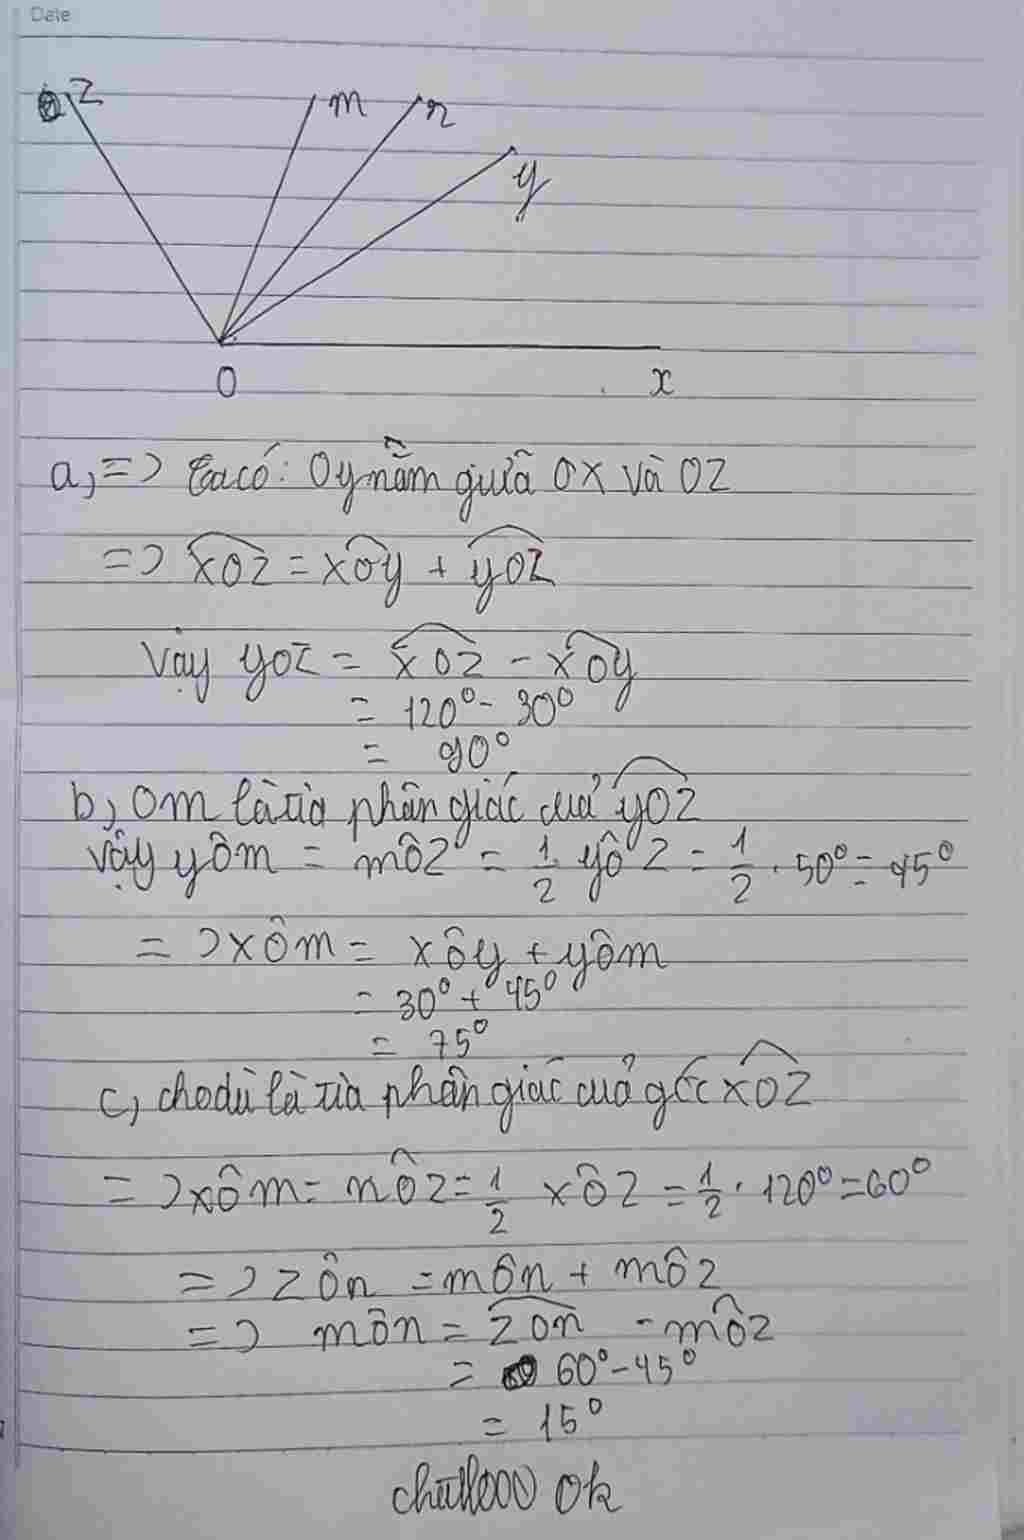 Date
z m n
y
O x
a, => Ta có: Oy nằm giữa OX và OZ
=> xOz = xOy + yOz
Vậy yOz = xOz - xOy
= 120⁰ - 30⁰
= 90⁰
b, Om là tia phân giác của yOz
vậy yÔm = mÔz = 1/2 yÔz = 1/2 . 50⁰ = 45⁰
=> xÔm = xÔy + yÔm
= 30⁰ + 45⁰
= 75⁰
c, là tia phân giác của góc xOz
=> xÔm = nÔz = 1/2 xÔz = 1/2 . 120⁰ = 60⁰
=> zÔn = mÔn + mÔz
=> mÔn = zOn - mÔz
= 60⁰ - 45⁰
= 15⁰
ok